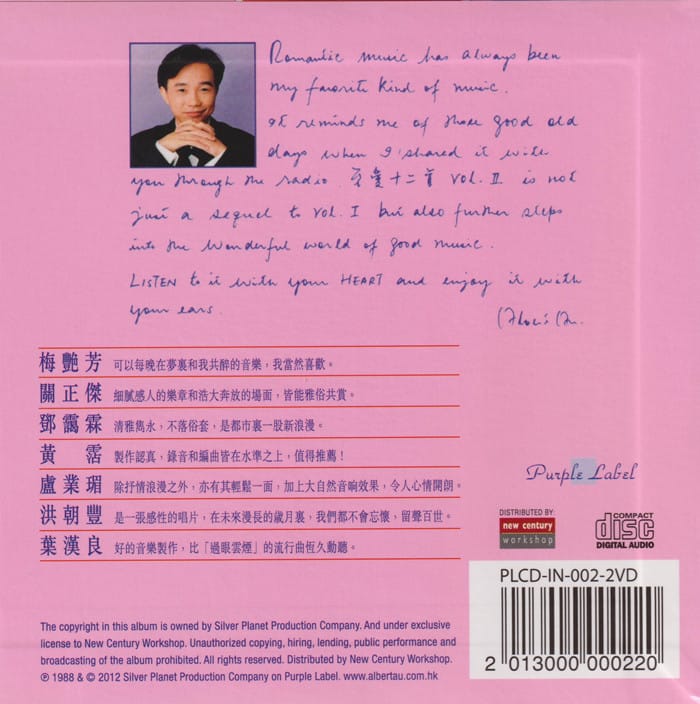 Romantic music has always been
my favorite kind of music.
It reminds me of those good old
days when I shared it with
you through the radio. 至愛十二首 Vol. II is not
just a sequel to Vol. I but also further steps
into the wonderful world of good music.
LISTEN to it with your HEART and enjoy it with
your ears.
梅艷芳 可以每晚在夢裏和我共醉的音樂，我當然喜歡。
關正傑 細膩感人的樂章和浩大奔放的場面，皆能雅俗共賞。
鄧靄霖 清雅雋永，不落俗套，是都市裏一股新浪漫。
黃霑 製作認真，錄音和編曲皆在水準之上，值得推薦！
盧業瑂 除抒情浪漫之外，亦有其輕鬆一面，加上大自然音响效果，令人心情開朗。
洪朝豐 是一張感性的唱片，在未來漫長的歲月裏，我們都不會忘懷，留聲百世。
葉漢良 好的音樂製作，比「過眼雲煙」的流行曲恆久動聽。
Purple Label
DISTRIBUTED BY:
new century
workshop
COMPACT
disc
DIGITAL AUDIO
PLCD-IN-002-2VD
2 013000 000220
The copyright in this album is owned by Silver Planet Production Company. And under exclusive
license to New Century Workshop. Unauthorized copying, hiring, lending, public performance and
broadcasting of the album prohibited. All rights reserved. Distributed by New Century Workshop.
℗ 1988 & © 2012 Silver Planet Production Company on Purple Label. www.albertau.com.hk